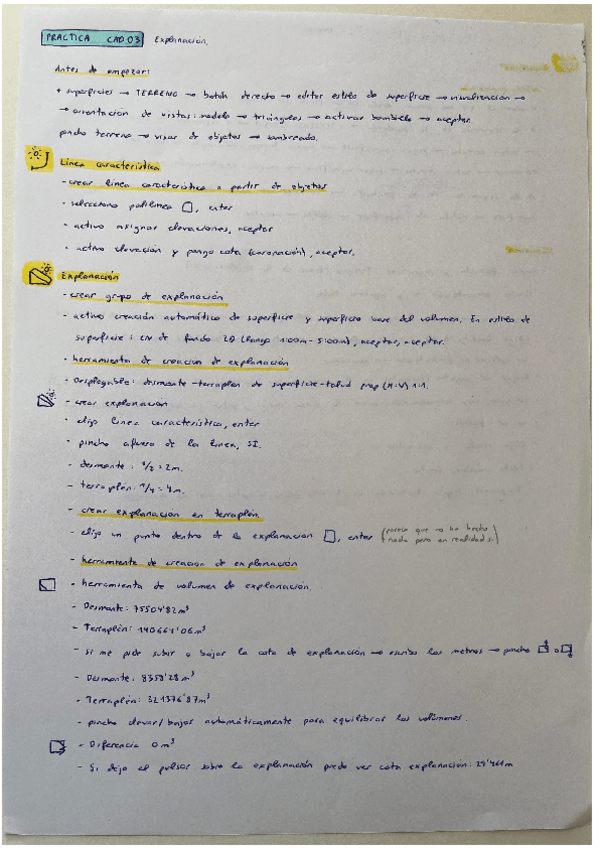 PRACTICA CAD 03 Explanación.
Antes de empezar:
+ superficies → TERRENO → botón derecho → editar estilo de superficie → visualización →
→ orientación de vistas: modelo → triángulos → activar bombilla → aceptar.
pincho terreno → visor de objetos → sombreado.
Línea característica
- crear línea característica a partir de objetos
- selecciono polilínea , enter
- activo asignar elevaciones, aceptar
- activo elevación y pongo cota (coronación), aceptar.
Explanación
- crear grupo de explanación
- activo creación automática de superficie y superficie base del volumen. En estilo de
superficie: CN de fondo 2D (Rango 1'00m - 5'00m), aceptar, aceptar.
- herramienta de creación de explanación
- Desplegable: desmonte - terraplén de superficie - talud prop (H:V) 1:1.
- crear explanación
- elijo línea característica, enter
- pincho afuera de la línea, SI.
- desmonte: 1/2 = 2m.
- terraplén: 1/4 = 4m.
- crear explanación en terraplén.
- elijo un punto dentro de la explanación , enter (parece que no ha hecho
nada pero en realidad si)
- herramienta de creación de explanación
- herramienta de volumen de explanación.
- Desmonte: 75504'82 m³
- Terraplén: 140664'06 m³
- si me pide subir o bajar la cota de explanación → escribo los metros → pincho o
- Desmonte: 8359'28 m³
- Terraplén: 321376'87 m³
- pincho elevar/bajar automáticamente para equilibrar los volúmenes.
- Diferencia 0 m³
- Si dejo al pulsar sobre la explanación puedo ver cota explanación: